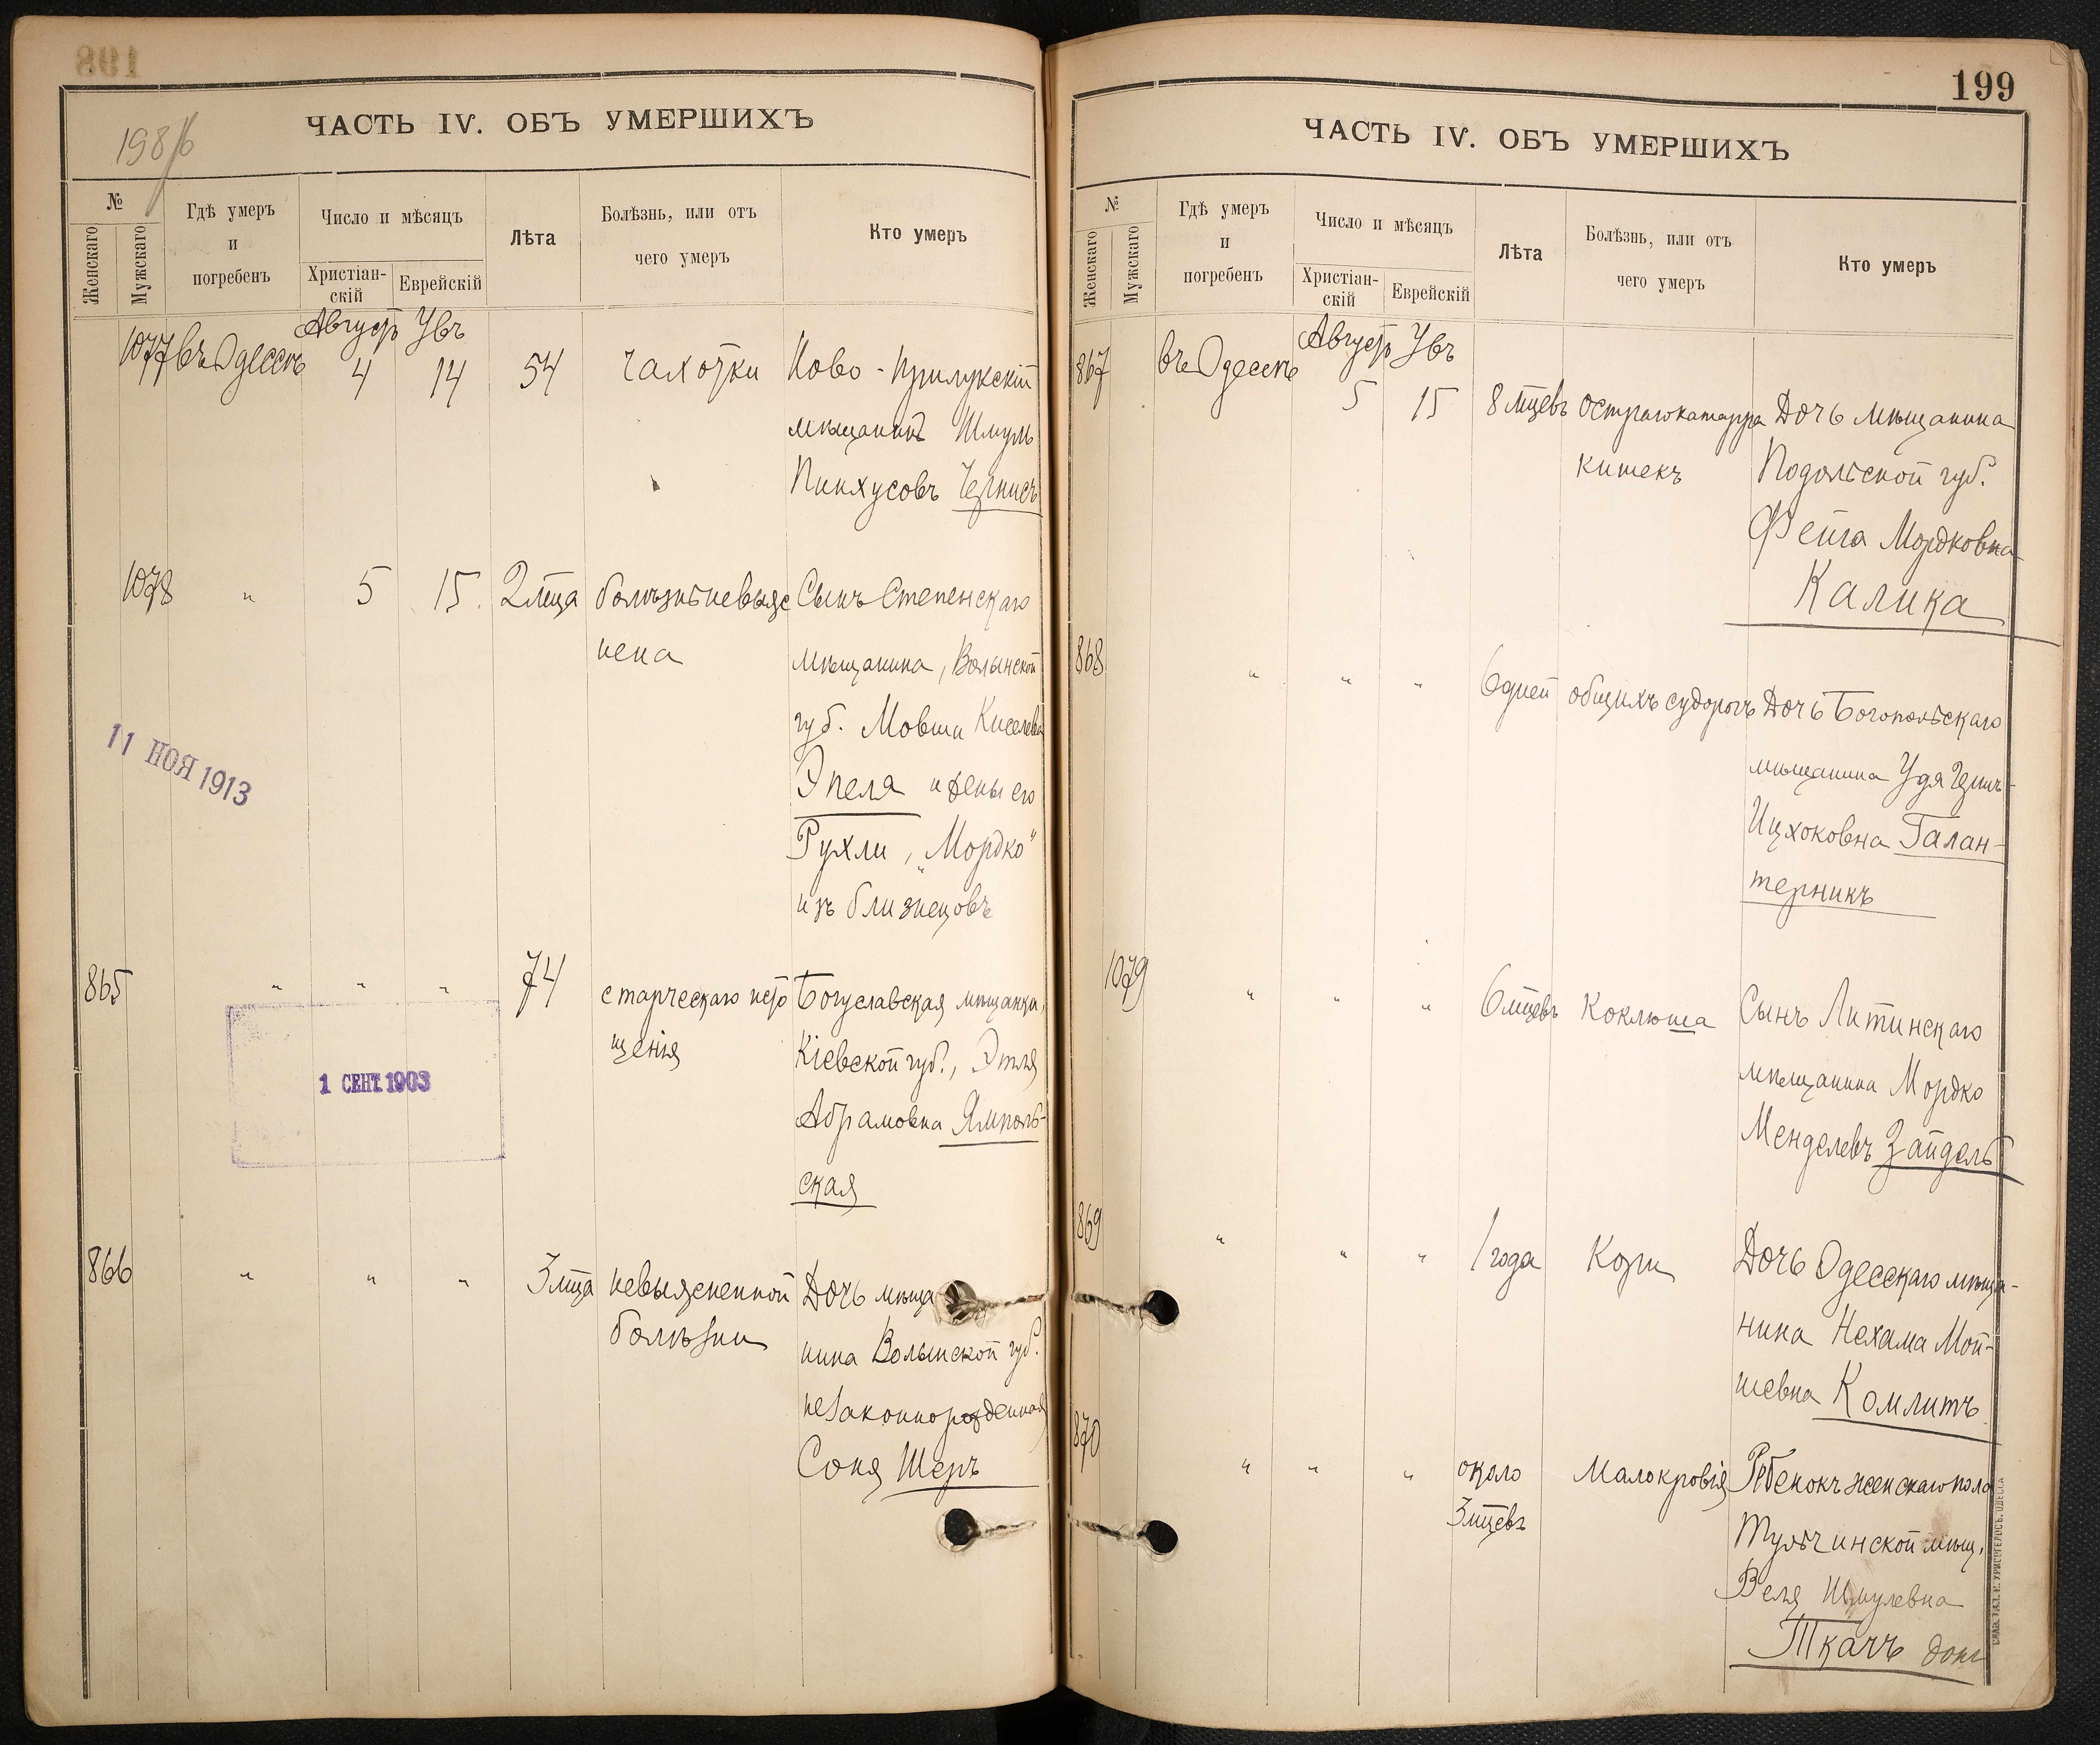 ЧАСТЬ IV. ОБЪ УМЕРШИХЪ
№
Женскаго
Мужскаго
Гдѣ умеръ
и
погребенъ
Число и мѣсяцъ
Христіан-
скій
Еврейскій
Лѣта
Болѣзнь, или отъ
чего умеръ
Кто умеръ
1077 въ Одессѣ Августъ 4 Увъ 14 54 чахотки Ново-Прилукскій
мѣщанинъ Шмуль
Пинхусовъ
1078 " 5 15 2 мца болѣзнь невыяс Сынъ Степенскаго
нена мѣщанина, Волынской
губ. Мовши Киселева
Эпеля и жены его
Рухли, „Мордко"
изъ близнецовъ
11 НОЯ 1913
865 " " " 74 старческаго исто Богуславская мѣщанка,
щенія Кіевской губ., Этля
Абрамовна Ямполь-
ская
1 СЕНТ. 1903
866 " " " 3 мца невыясненной Дочь мѣща
болѣзни нина Волынской губ.
незаконнорожденная
Соня Шеръ
199
ЧАСТЬ IV. ОБЪ УМЕРШИХЪ
№
Женскаго
Мужскаго
Гдѣ умеръ
и
погребенъ
Число и мѣсяцъ
Христіан-
скій
Еврейскій
Лѣта
Болѣзнь, или отъ
чего умеръ
Кто умеръ
867 въ Одессѣ Августъ 5 Увъ 15 8 мцевъ остраго катарра Дочь мѣщанина
кишекъ Подольской губ.
Фейга Мордковна
Калика
868 " " " 6 дней общихъ судорогъ Дочь Богопольскаго
мѣщанина Удя
Ицхоковна Галан-
терникъ
1079 " " " 6 мцевъ Коклюша Сынъ Литинскаго
мѣщанина Мордко
Менделевъ Зайдель
869 " " " 1 года Кори Дочь Одесскаго мѣща-
нина Нехама Мой-
шевна Комлитъ
870 " " " около Малокровія Ребенокъ женскаго пола
3 мцевъ Тульчинской мѣщ.
Веля Шмулевна
Ткачъ